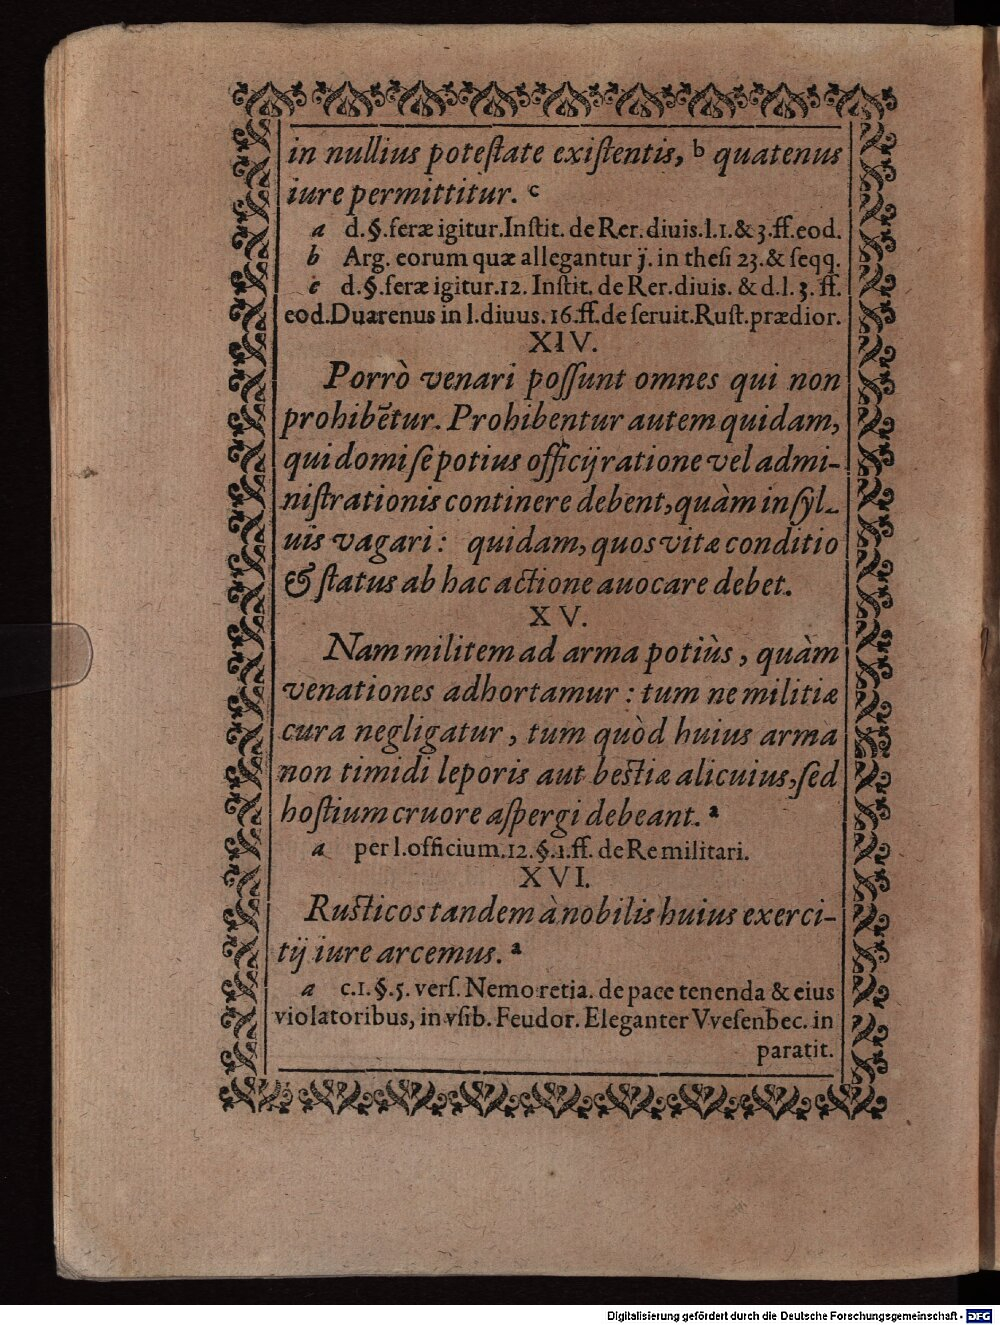 in nullius poteſtate exiſtentis, b quatenus
iure permittitur. c
a d.§.feræ igitur.Inſtit. de Rer. diuis.l.1.& 3.ff.eod.
b Arg. eorum quæ allegantur j. in theſi 23.& ſeqq.
c d.§.feræ igitur.12. Inſtit. de Rer.diuis. & d.l.3. ff.
eod.Duarenus in l.diuus.16.ff.de ſeruit.Ruſt.prædior.
XIV.
Porrò venari poſſunt omnes qui non
prohibẽtur. Prohibentur autem quidam,
qui domi ſe potius officij ratione vel admi-
niſtrationis continere debent, quàm in ſyl-
uis vagari: quidam, quos vitæ conditio
& ſtatus ab hac actione auocare debet.
XV.
Nam militem ad arma potiùs, quàm
venationes adhortamur: tum ne militiæ
cura negligatur, tum quòd huius arma
non timidi leporis aut beſtiæ alicuius, ſed
hoſtium cruore aſpergi debeant. a
a per l.officium.12.§.1.ff. de Re militari.
XVI.
Ruſticos tandem à nobilis huius exerci-
tij iure arcemus. a
a c.1.§.5. verſ. Nemo retia. de pace tenenda & eius
violatoribus, in vſib. Feudor. Eleganter VVeſenbec. in
paratit.
Digitalisierung gefördert durch die Deutsche Forschungsgemeinschaft - DFG